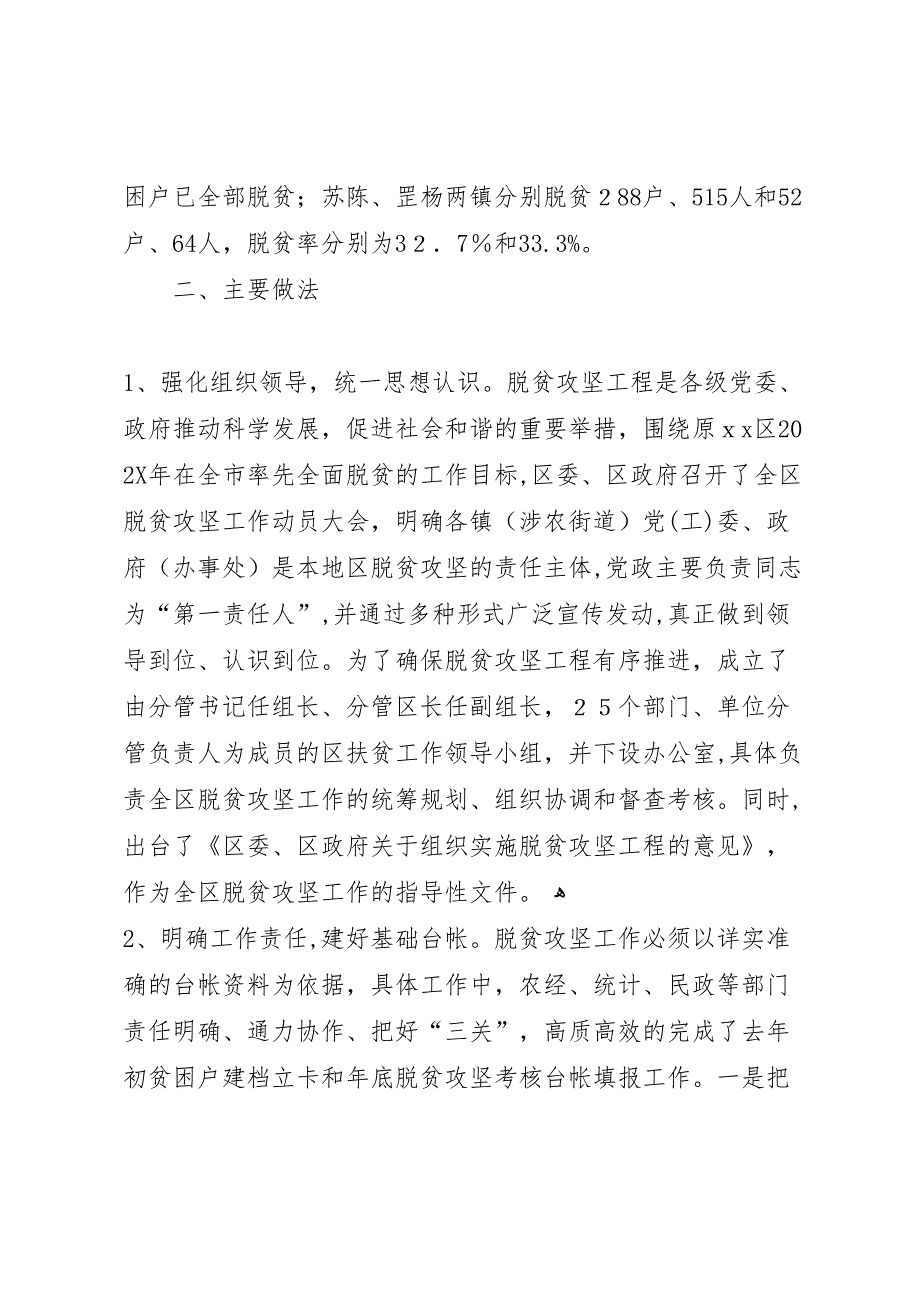 困户已全部脱贫；苏陈、罡杨两镇分别脱贫２88户、515人和52
户、64人，脱贫率分别为3２．7％和33.3%。
二、主要做法
1、强化组织领导，统一思想认识。脱贫攻坚工程是各级党委、
政府推动科学发展，促进社会和谐的重要举措，围绕原ｘx区202
02X年在全市率先全面脱贫的工作目标,区委、区政府召开了全区
脱贫攻坚工作动员大会，明确各镇（涉农街道）党(工)委、政
府（办事处）是本地区脱贫攻坚的责任主体,党政主要负责同志
为“第一责任人”,并通过多种形式广泛宣传发动,真正做到领
导到位、认识到位。为了确保脱贫攻坚工程有序推进，成立了
由分管书记任组长、分管区长任副组长，２５个部门、单位分
管负责人为成员的区扶贫工作领导小组，并下设办公室,具体负
责全区脱贫攻坚工作的统筹规划、组织协调和督查考核。同时,
出台了《区委、区政府关于组织实施脱贫攻坚工程的意见》，
作为全区脱贫攻坚工作的指导性文件。ﻫ
2、明确工作责任,建好基础台帐。脱贫攻坚工作必须以详实准
确的台帐资料为依据，具体工作中，农经、统计、民政等部门
责任明确、通力协作、把好“三关”，高质高效的完成了去年
初贫困户建档立卡和年底脱贫攻坚考核台帐填报工作。一是把